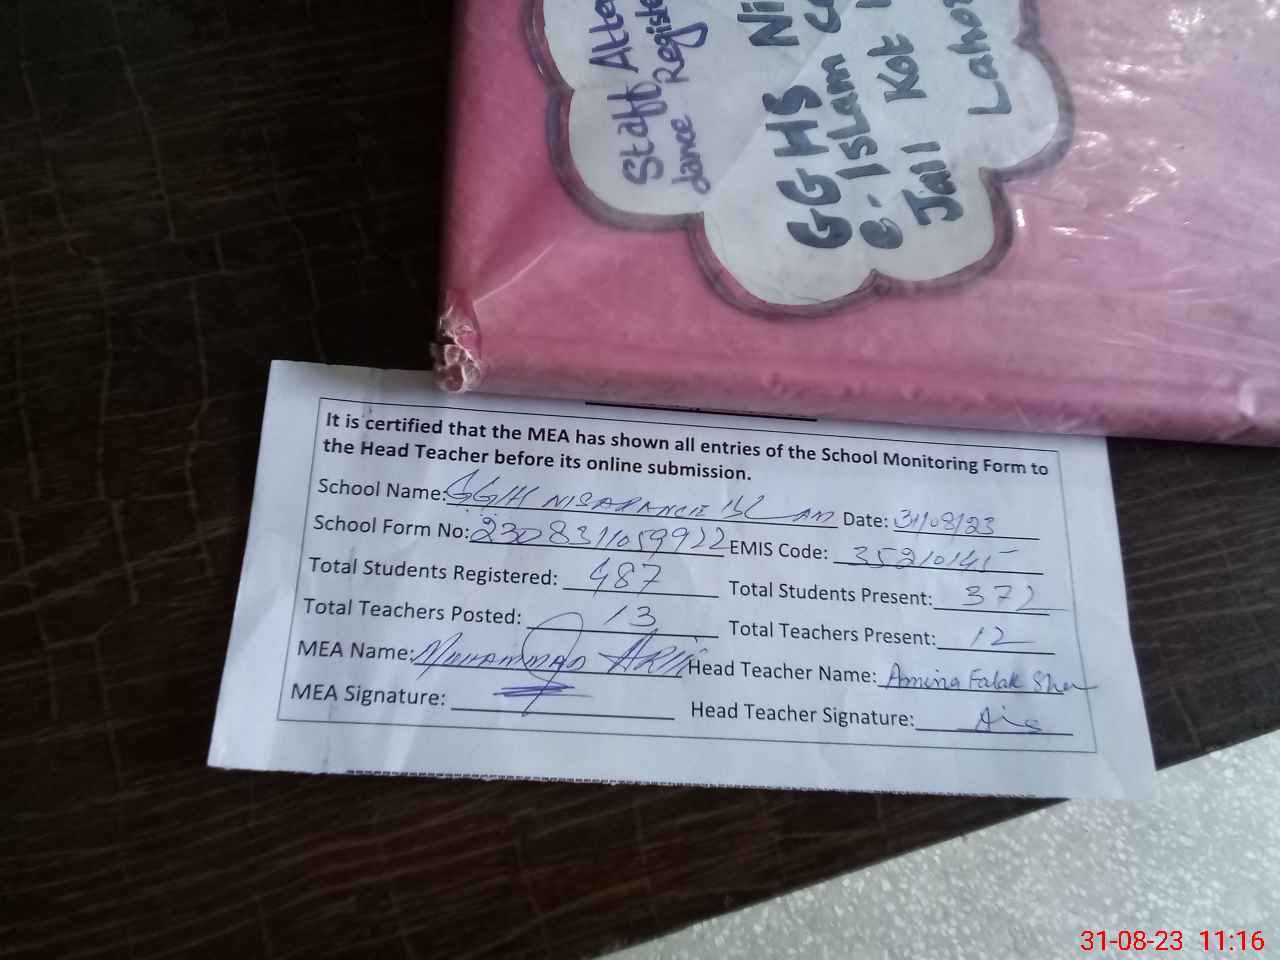 Staff Atten
dance Register
GGHS Ni
e-Islam Co
Jail Kot
Lahor
It is certified that the MEA has shown all entries of the School Monitoring Form to
the Head Teacher before its online submission.
School Name: Date: 31/08/23
School Form No: 2308311059922 EMIS Code: 35210145
Total Students Registered: 487 Total Students Present: 372
Total Teachers Posted: 13 Total Teachers Present: 12
MEA Name: MUHAMMAD ARIF Head Teacher Name: Amina Falak Sher
MEA Signature: Head Teacher Signature:
31-08-23 11:16